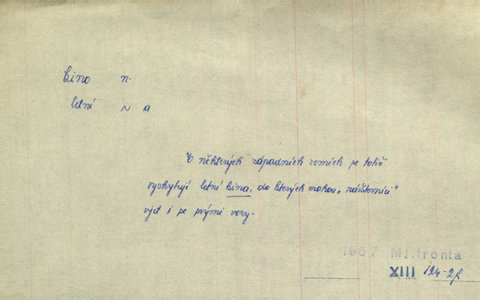 kino n.
letní ~ a
V některých západních zemích se totiž
vyskytují letní kina, do kterých mohou „návštěvníci"
vjet i se svými vozy.
1957 Ml.fronta
XIII 124-2f